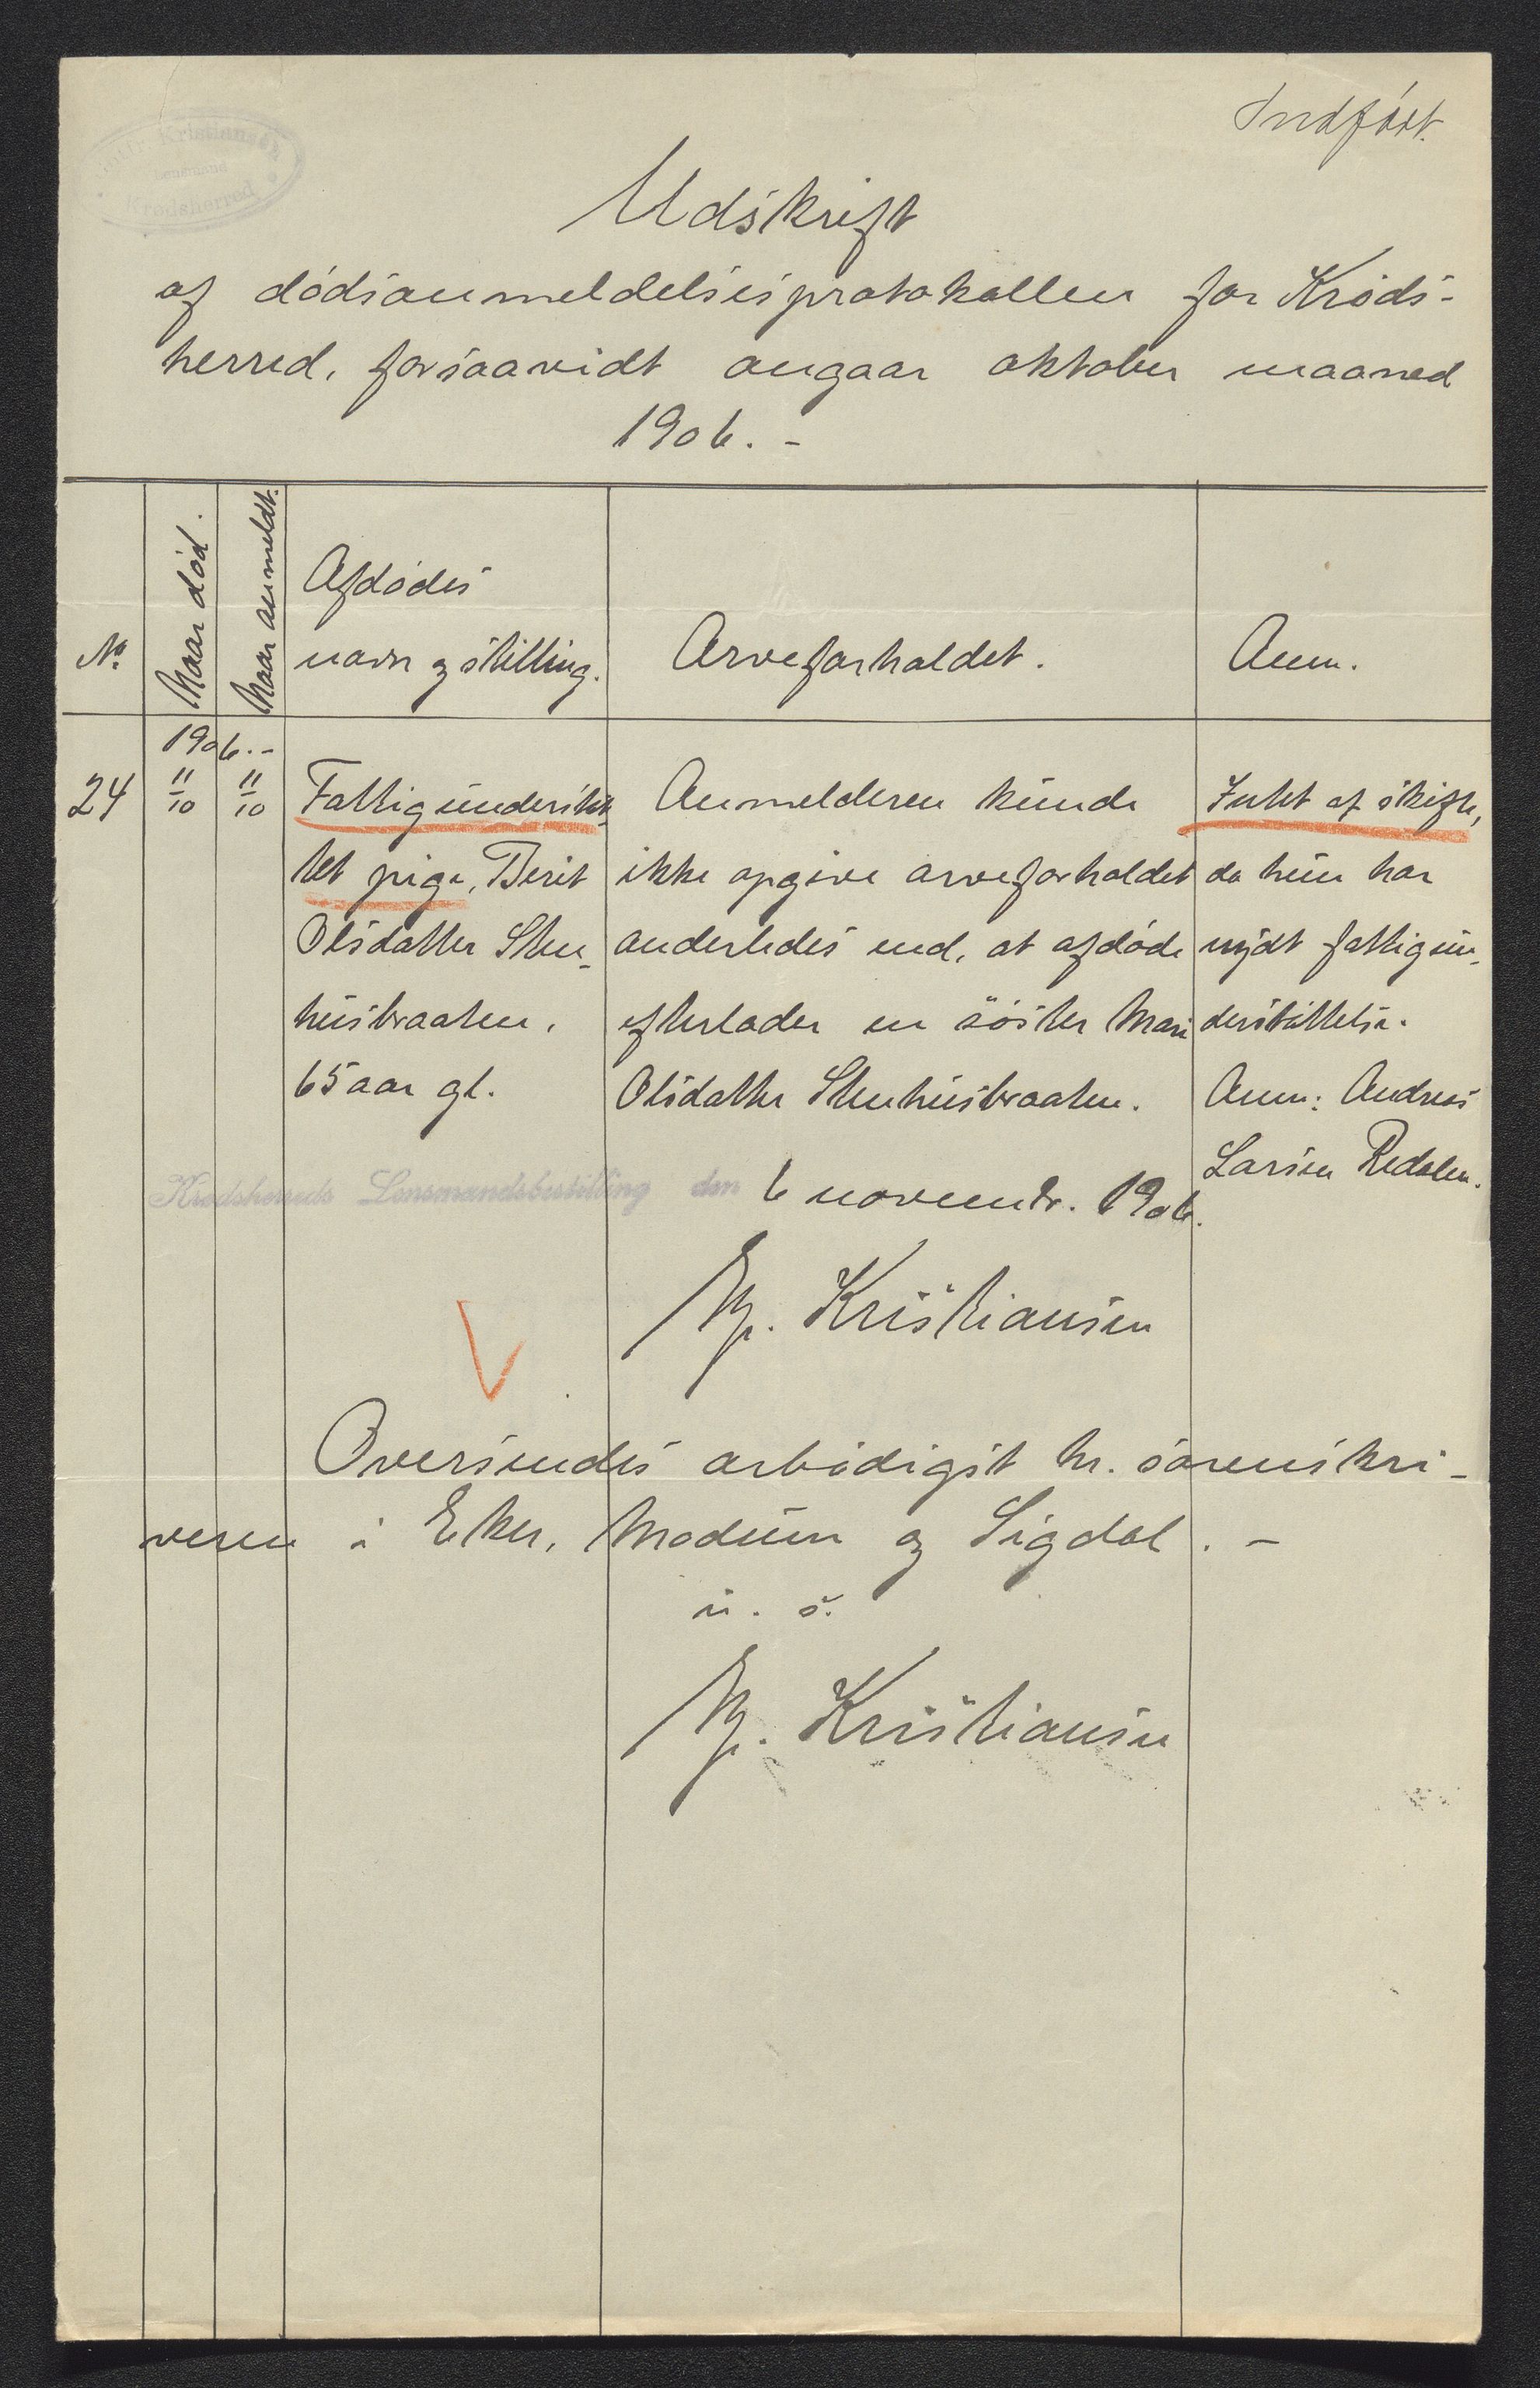 Indført.
Kristiansen
Lensmand
Krødsherred
Udskrift
af dødsanmeldelsesprotokollen for Krøds-
herred, forsaavidt angaar oktober maaned
1906. -
No.
Naar død.
Naar anmeldt.
Afdødes
navn og stilling.
Arveforholdet.
Anm.
1906.-
24
11/10
11/10
Fattigunderstøt-
tet pige, Berit
Olsdatter Sten-
husbraaten,
65 aar gl.
Anmelderen kunde
ikke opgive arveforholdet
anderledes end, at afdøde
efterlader en søster Mari
Olsdatter Stenhusbraaten.
Intet af skifte,
da hun har
nydt fattigun-
derstøttelse.
Anm: Andreas
Larsen Redalen.
Krødsherreds Lensmandsbestilling den 6 novembr. 1906.
Kristiansen
Oversendes ærbødigst hr. sorenskri-
veren i Eker, Modum og Sigdal. -
u. s.
Kristiansen